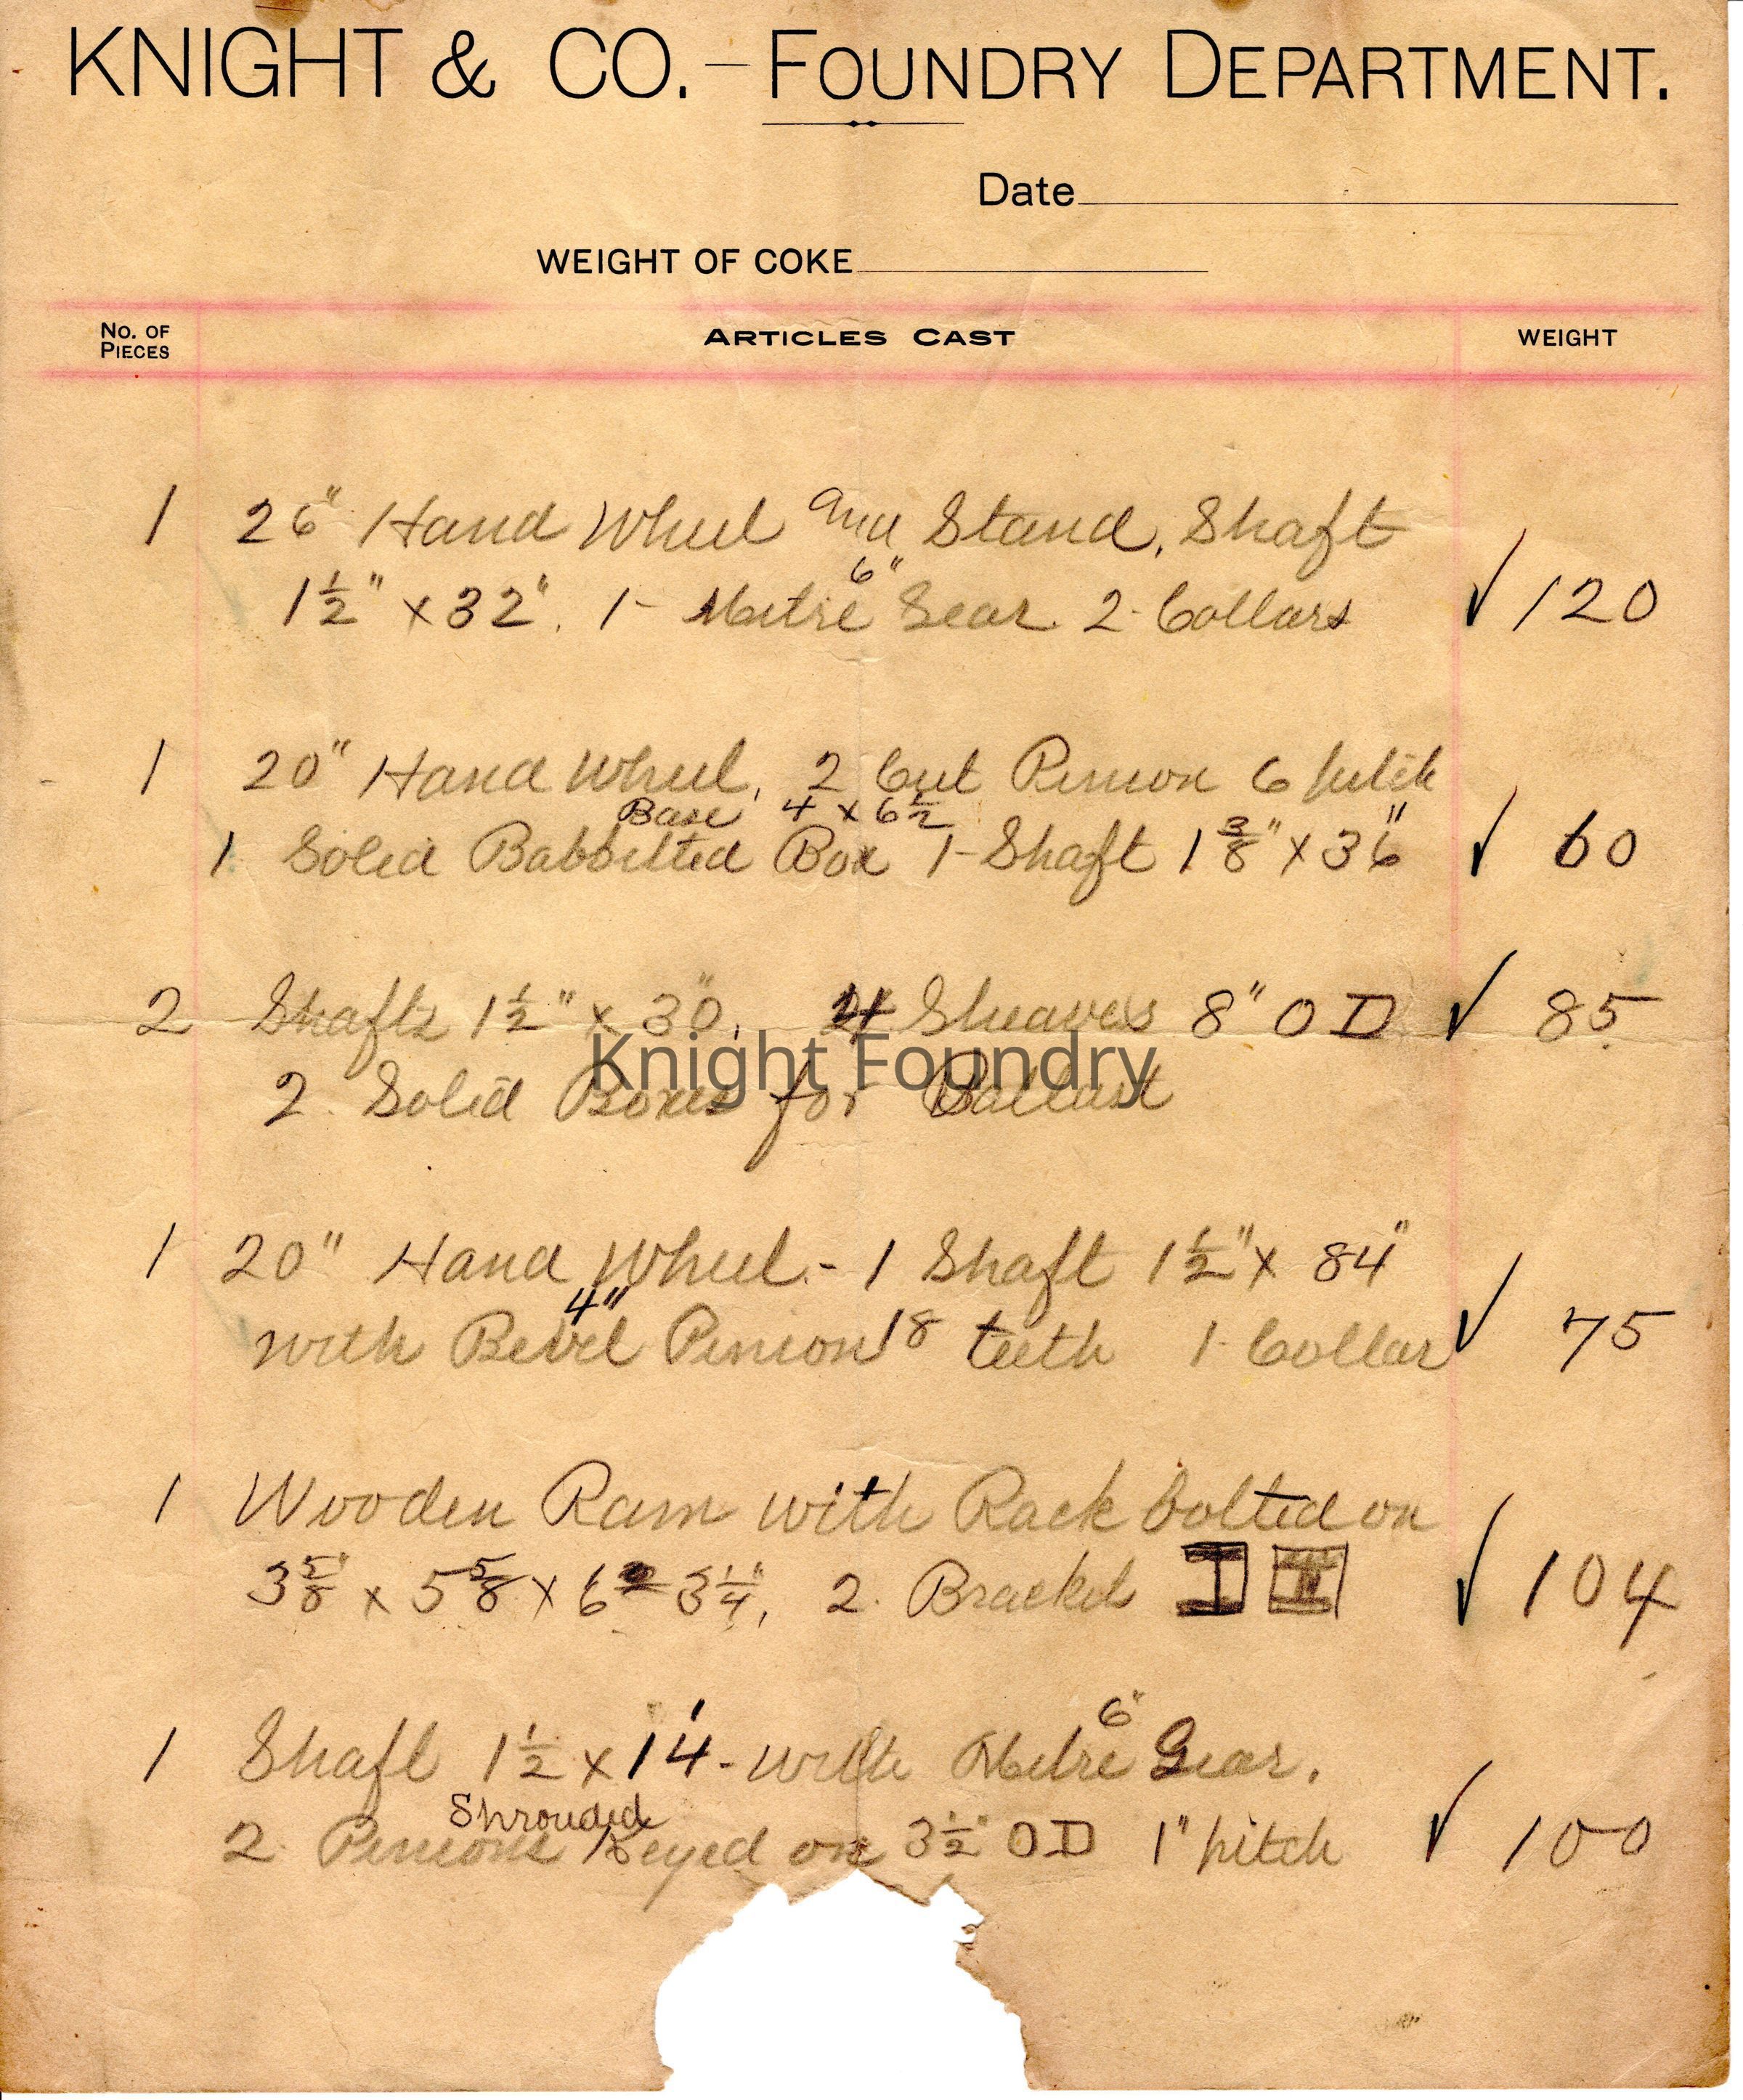 KNIGHT & CO. — FOUNDRY DEPARTMENT.
Date
WEIGHT OF COKE
No. OF PIECES ARTICLES CAST WEIGHT
1 26" Hand Wheel and Stand, Shaft
6"
1½" x 32". 1- Metre Gear. 2- Collars ✓ 120
1 20" Hand Wheel, 2 Cut Pinion 6 pitch
Base 4 x 6½
1 Solid Babbitted Box 1- Shaft 1 3/8" x 36" ✓ 60
2 Shafts 1½" x 30". 4 Sheaves 8" OD ✓ 85
Knight Foundry
2. Solid Boxes for Ballast
1 20" Hand Wheel.- 1 Shaft 1½" x 84"
4"
with Bevel Pinion 18 teeth 1- Collar ✓ 75
1 Wooden Ram with Rack bolted on
3 5/8" x 5 5/8 x 6 3¼", 2. Brackets ✓ 104
6"
1 Shaft 1½ x 14' - with Metre Gear.
Shrouded
2 Pinions Keyed on 3½" OD 1" pitch ✓ 100